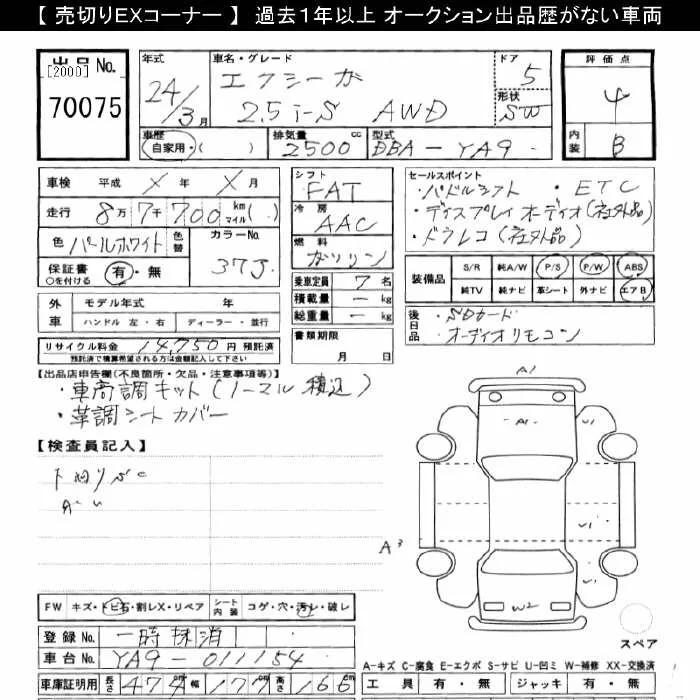 【 売切りEXコーナー 】 過去１年以上 オークション出品歴がない車両
出品 No.
[2000]
70075
年式
24/3月
車名・グレード
エクシーガ
2.5 i-S AWD
ドア
5
形状
SW
評価点
4
内装
B
車歴
自家用・( )
排気量
2500 cc
型式
DBA - YA9
車検 平成 X 年 X 月
走行 8万 7千 700 km マイル ( )
色 パールホワイト 色替
カラーNo.
37J
保証書 有・無
○を付ける
シフト
FAT
冷房
AAC
燃料
ガソリン
乗車定員 7 名
積載量 ー kg
総重量 ー kg
書類期限
月 日
セールスポイント
・パドルシフト ・ETC
・ディスプレイオーディオ(社外品)
・ドラレコ(社外品)
装備品 S/R 純A/W P/S P/W ABS
純TV 純ナビ 革シート 外ナビ エアB
後日品 ・SDカード
・オーディオリモコン
外車 モデル年式 年
ハンドル 左・右 ディーラー・並行
リサイクル料金 14,750 円 預託済
預託済で積算希望される方は金額記入して下さい
【出品店申告欄(不良箇所・欠品・注意事項等)】
・車高調キット(ノーマル積込)
・革調シートカバー
【検査員記入】
A1
A1
U1
U1
A3
U1
W2
FW キズ・トビ石・割レX・リペア シート内装 コゲ・穴・汚レ・破レ
スペア
登録 No. 一時抹消
車台 No. YA9-011154
A-キズ C-腐食 E-エクボ S-サビ U-凹ミ W-補修 XX-交換済
車庫証明用 長さ 474 幅 177 高さ 166
工具 有・無 ジャッキ 有・無